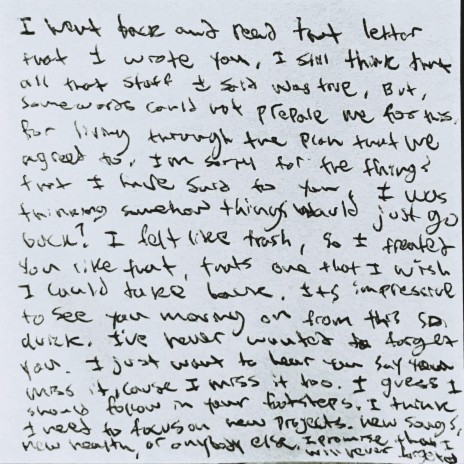 I went back and read that letter
that I wrote you, I still think that
all that stuff I said was true, But,
some words could not prepare me for this,
for living through the plan that we
agreed to. I'm sorry for the things
that I have said to you, I was
thinking somehow things would just go
back? I felt like trash, so I treated
you like that, thats one that I wish
I could take back. Its impressive
to see you moving on from this so
quick. I've never wanted to forget
you. I just want to hear you say you
miss it, cause I miss it too. I guess I
should follow in your footsteps. I think
I need to focus on new projects. new songs,
new health, or anybody else. I promise that I
will never